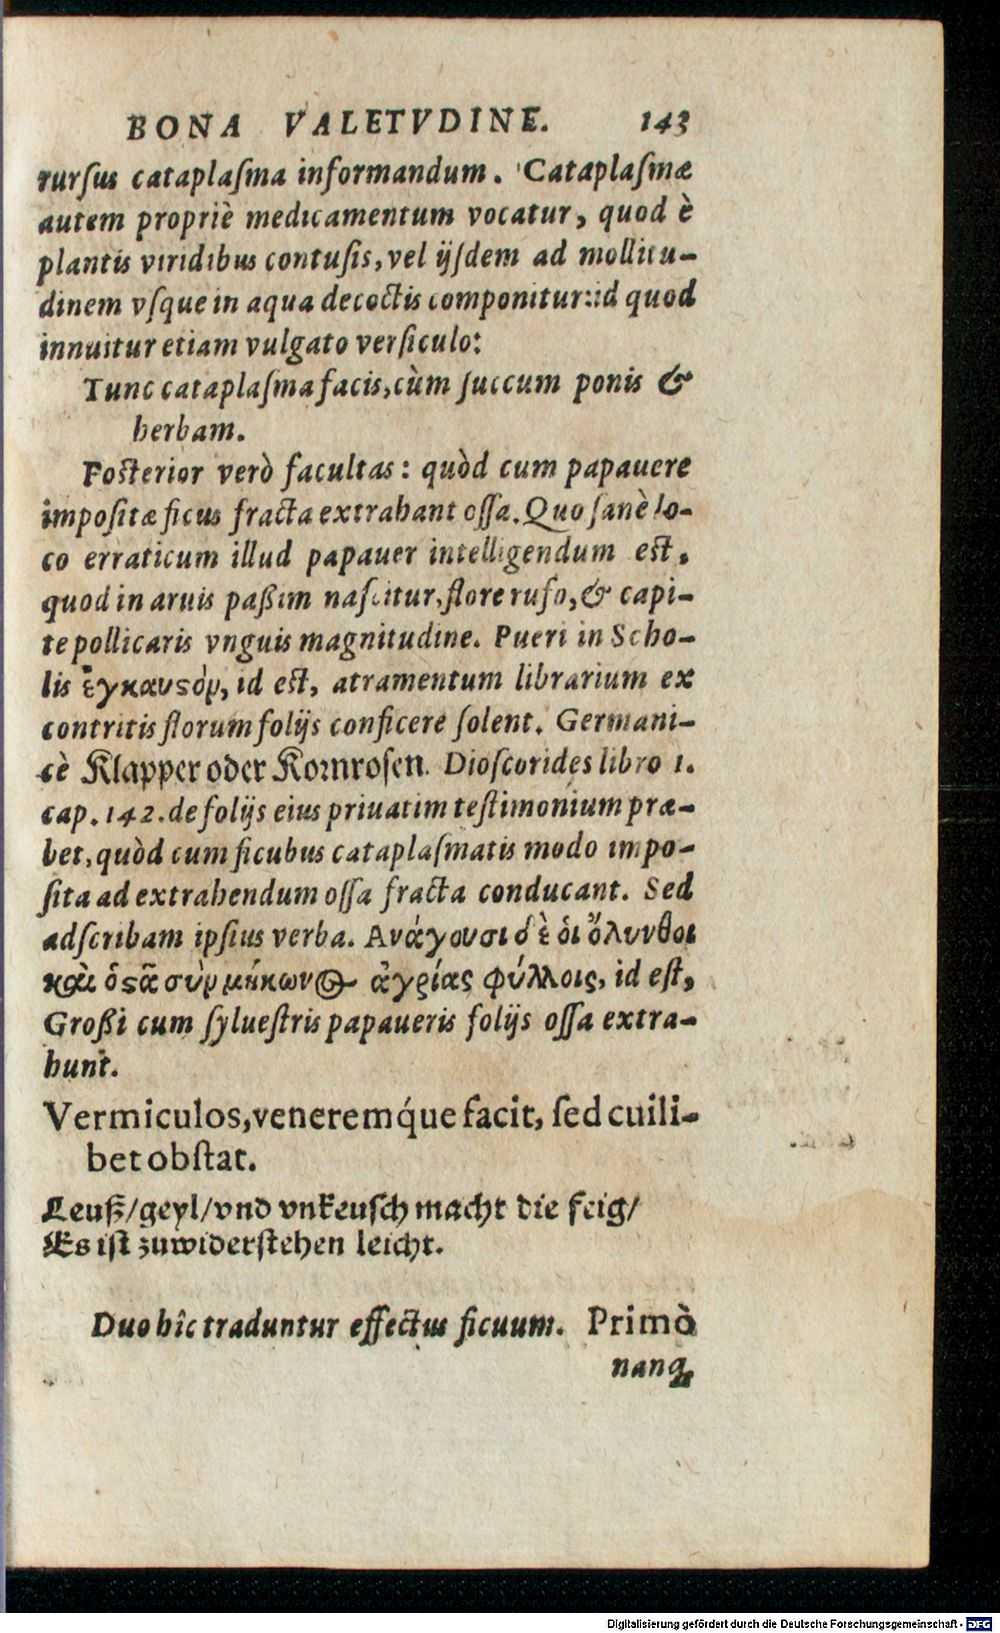 BONA VALETVDINE. 143
rurſus cataplaſma informandum. Cataplaſmæ
autem propriè medicamentum vocatur, quod è
plantis viridibus contuſis, vel ijſdem ad mollitu-
dinem vſque in aqua decoctis componitur: id quod
innuitur etiam vulgato verſiculo:
Tunc cataplaſma facis, cùm ſuccum ponis &
herbam.
Poſterior verò facultas: quòd cum papauere
impoſitæ ficus fracta extrahant oſſa. Quo ſanè lo-
co erraticum illud papauer intelligendum eſt,
quod in aruis paßim naſcitur, flore rufo, & capi-
te pollicaris vnguis magnitudine. Pueri in Scho-
lis ἔγκαυϛὸν, id eſt, atramentum librarium ex
contritis florum folijs conficere ſolent. Germani-
cè Klapper oder Kornroſen. Dioſcorides libro 1.
cap. 142. de folijs eius priuatim teſtimonium præ-
bet, quòd cum ficubus cataplaſmatis modo impo-
ſita ad extrahendum oſſa fracta conducant. Sed
adſcribam ipſius verba. Ανάγουσι δὲ ὁι ὄλυνθοι
καὶ ὀϛᾶ σὺν μήκωνος ἀγρίας φύλλοις, id eſt,
Großi cum ſylueſtris papaueris folijs oſſa extra-
hunt.
Vermiculos, veneremq́ue facit, ſed cuili-
bet obſtat.
Leuß/geyl/vnd vnkeuſch macht die feig/
Es iſt zuwiderſtehen leicht.
Duo hîc traduntur effectus ficuum. Primò
nanq́;
Digitalisierung gefördert durch die Deutsche Forschungsgemeinschaft - DFG